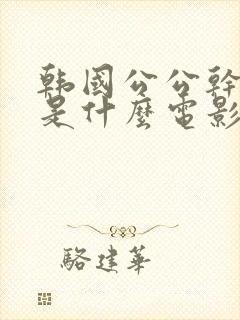 韩國公公幹
是什麼電影
駱建華